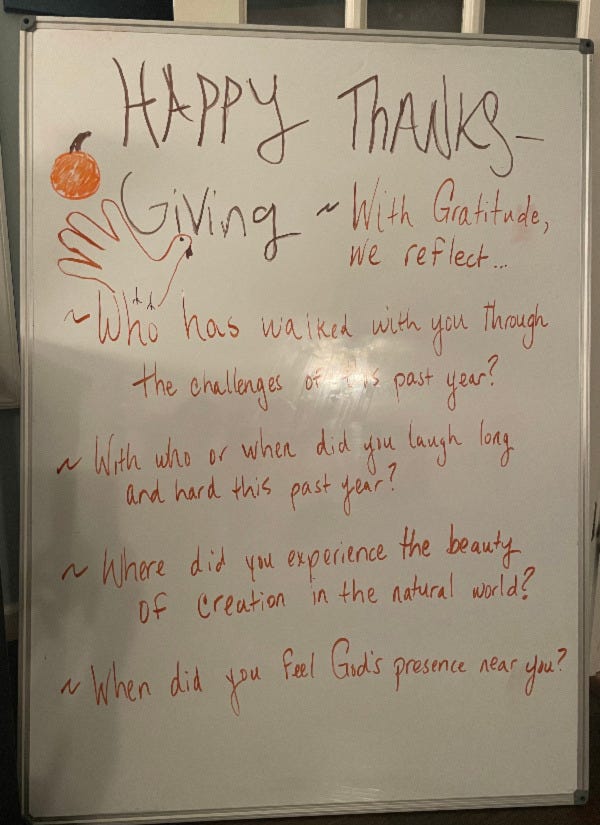 HAPPY THANKS-
GIVING ~ With Gratitude,
we reflect...
~ Who has walked with you through
the challenges of this past year?
~ With who or when did you laugh long
and hard this past year?
~ Where did you experience the beauty
of creation in the natural world?
~ When did you feel God's presence near you?